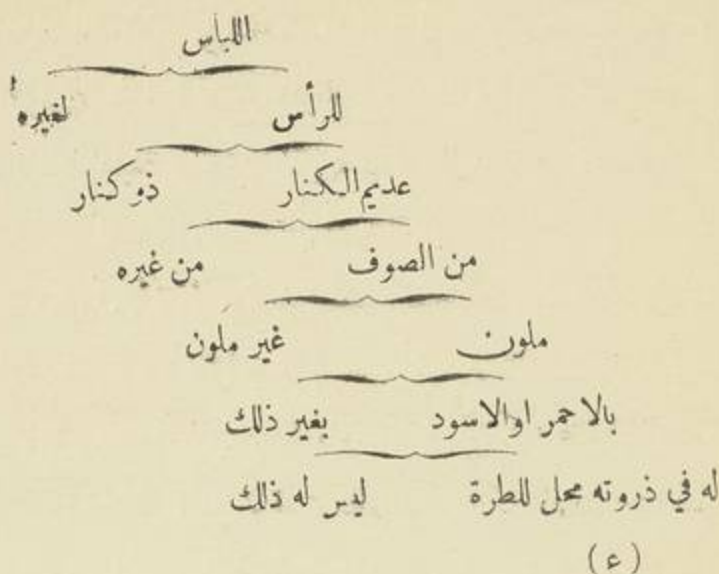 اللباس
للرأس لغيره
عديم الكنار ذو كنار
من الصوف من غيره
ملون غير ملون
بالاحمر اوالاسود بغير ذلك
له في ذروته محل للطرة ليس له ذلك
(ء)